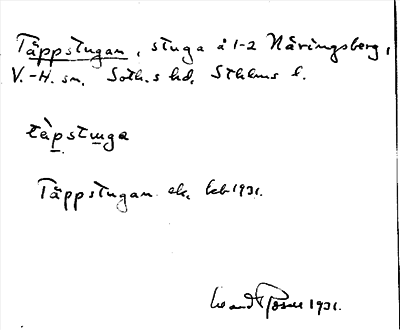 Täppstugan, stuga å 1-2 Näringsberg,
V.-H. sn. Soth.s hd, Sthlms l.
tàpstɯga
Täppstugan ek. kbl 1931.
1931.